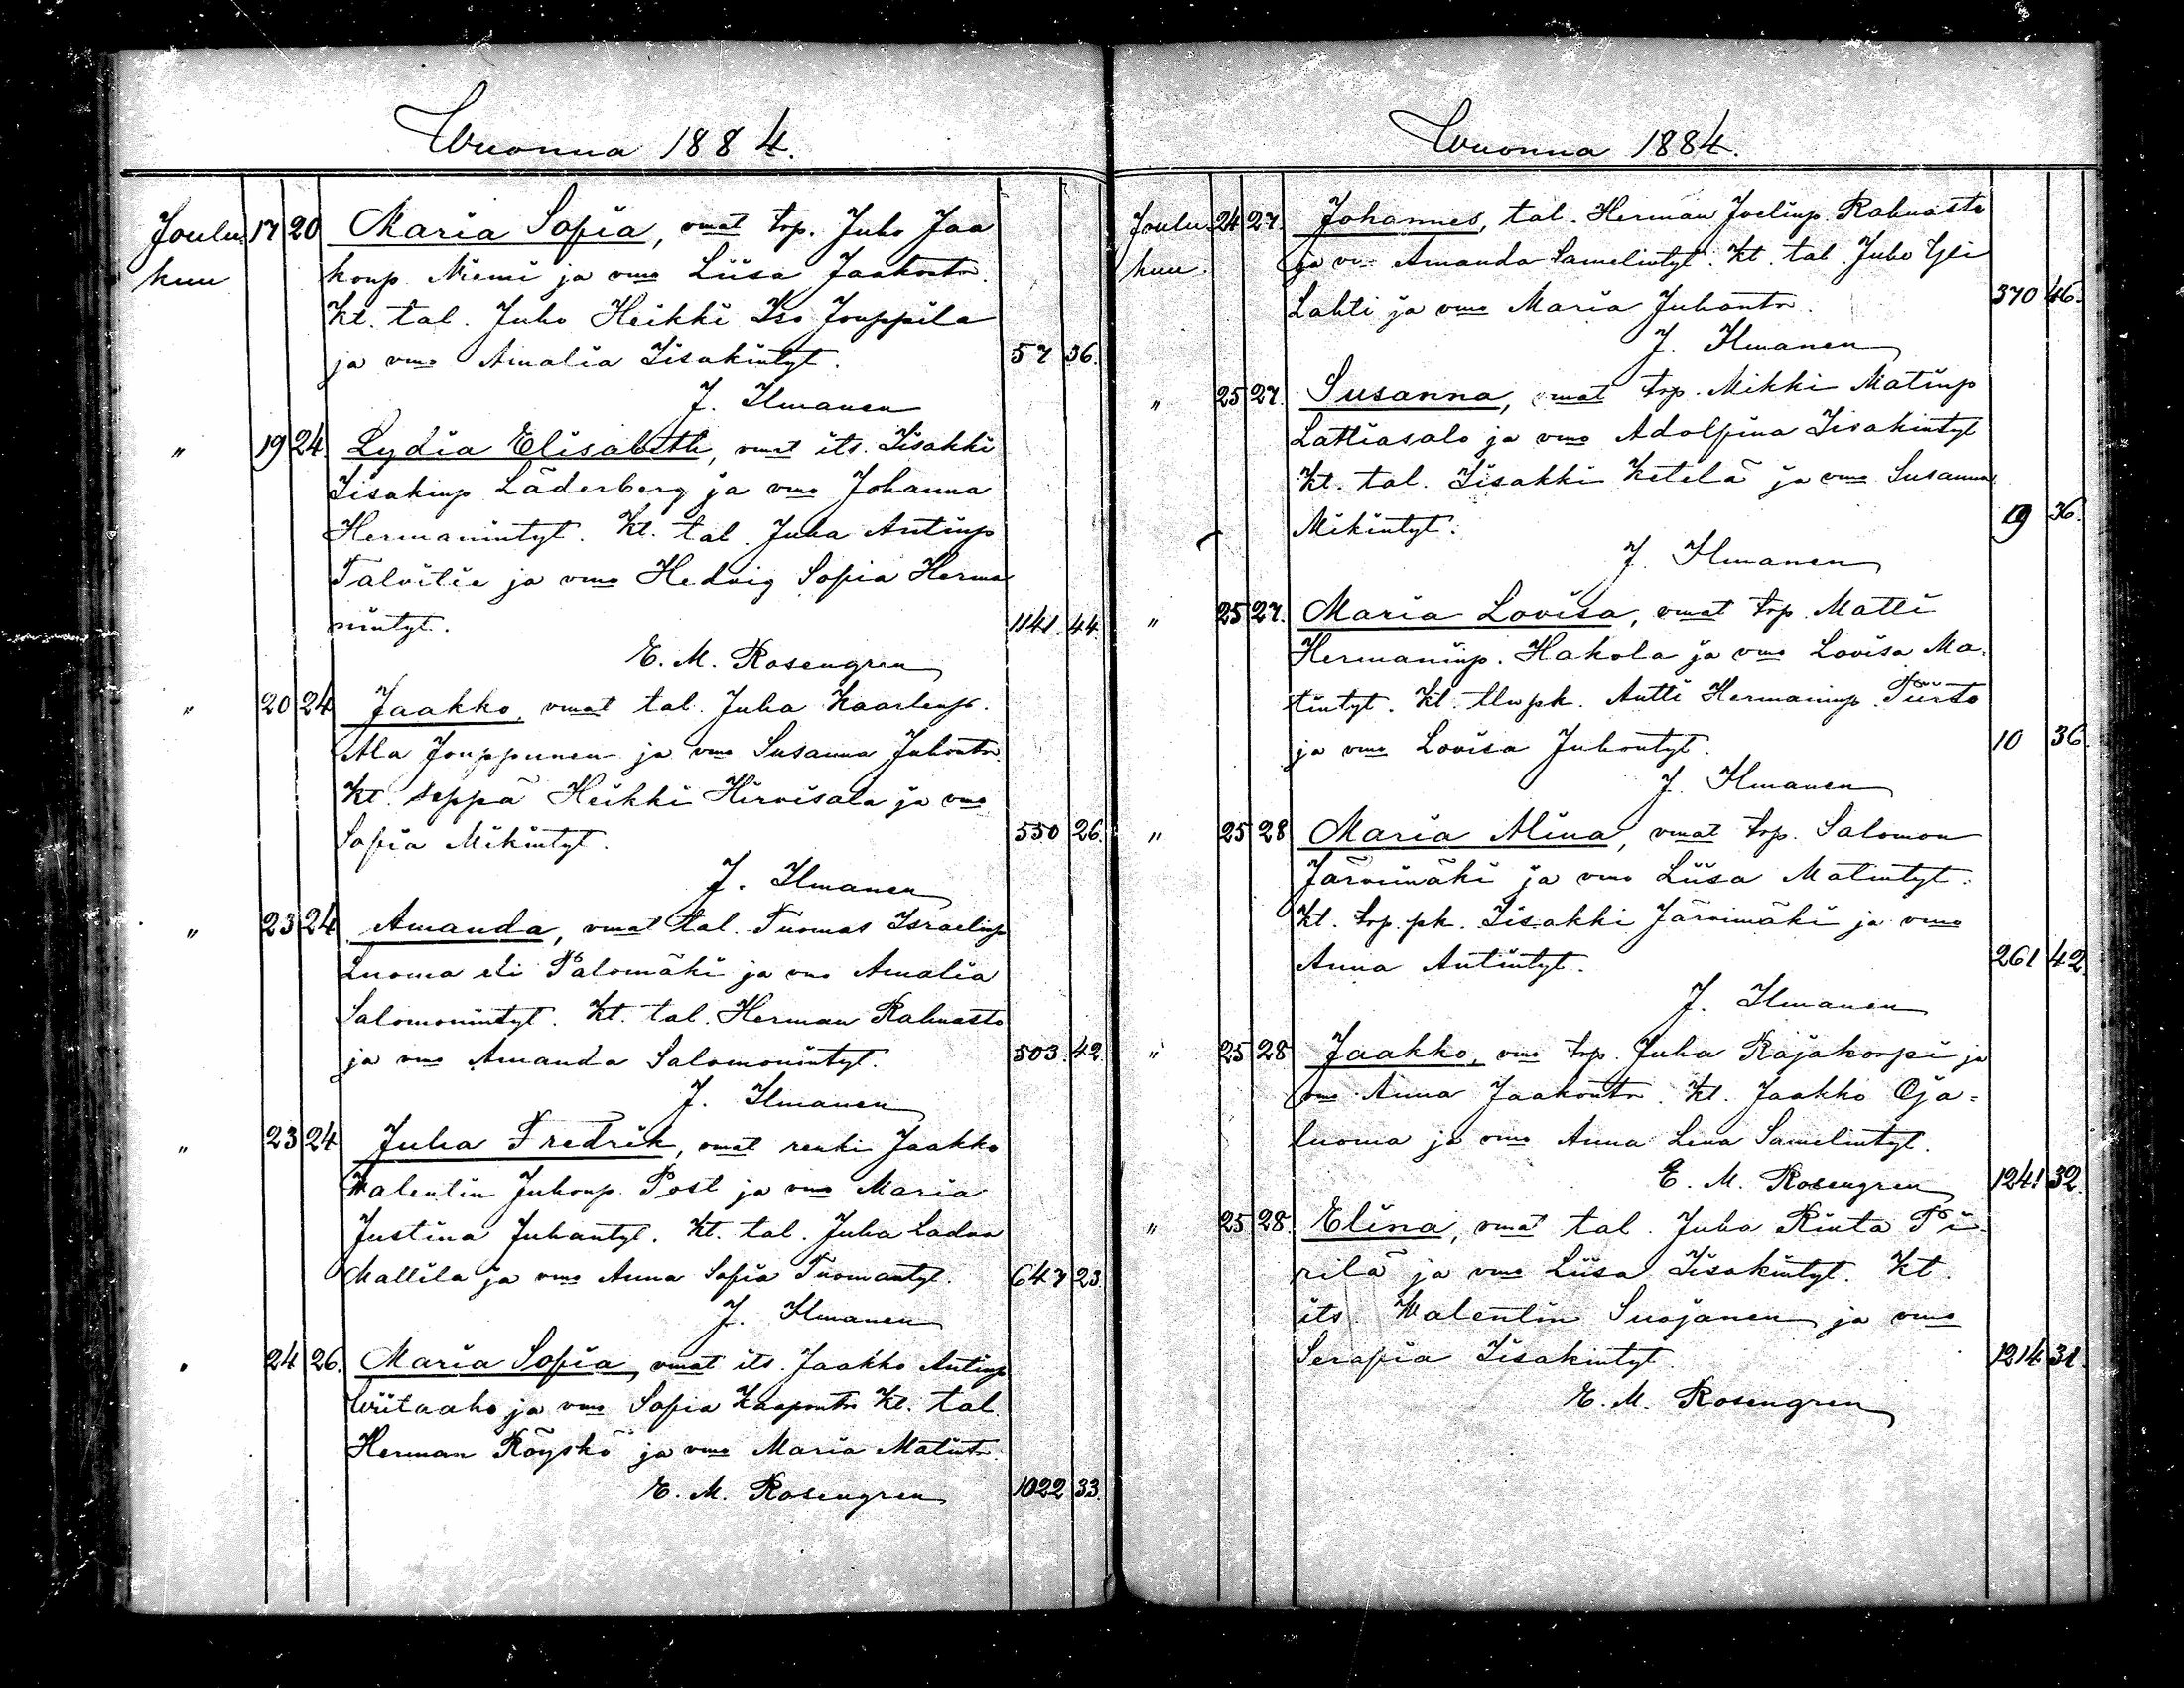 Wuonna 1884.
Joulu 17 20 Maria Sofia, vmat trp. Juho Jaa
kuu konp. Niemi ja vmo Liisa Jaakontr.
Kt. tal. Juho Heikki Iso Jouppila
ja vmo Amalia Iisakintyt. 57 36.
J. Ilmanen
" 19 24. Lydia Elisabeth, vmat its. Iisakki
Iisakinp Läderberg ja vmo Johanna
Hermanintyt. Kt. tal. Juha Antinp
Talvitie ja vmo Hedvig Sofia Herma
nintyt. 1141. 44.
E. M. Rosengren
" 20 24 Jaakko, vmat tal. Juha Kaarlenp.
Ala Jouppunen ja vmo Susanna Juhontr.
Kt. seppä Heikki Hirvisala ja vmo
Sofia Mikintyt. 550 26.
J. Ilmanen
" 23 24 Amanda, vmat tal. Tuomas Israelinp
Luoma eli Palomäki ja vmo Amalia
Salomonintyt. Kt. tal. Herman Rahnasto
ja vmo Amanda Salomonintyt. 503. 42.
J. Ilmanen
" 23 24 Juha Fredrik, vmat renki Jaakko
Walentin Juhonp. Post ja vmo Maria
Justina Juhantyt. Kt. tal. Juha Ladva
Mallila ja vmo Anna Sofia Tuomantyt. 647 23.
J. Ilmanen
" 24 26. Maria Sofia, vmat its. Jaakko Antinp
Wiitaaho ja vmo Sofia Kaapontr Kt. tal.
Herman Röyskö ja vmo Maria Matintr.
E. M. Rosengren 1022 33.
Wuonna 1884.
Joulu 24 27. Johannes, tal. Herman Joelinp. Rahnasto
kuu. ja vmo Amanda Samelintyt. Kt. tal. Juho Yli
Lahti ja vmo Maria Juhontr. 370 46.
J. Ilmanen
" 25 27. Susanna, vmat trp. Mikki Matinp
Lattiasalo ja vmo Adolfina Iisakintyt
Kt. tal. Iisakki Ketelä ja vmo Susanna
Mikintyt. 19 36.
J. Ilmanen
" 25 27. Maria Lovisa, vmat trp. Matti
Hermaninp. Hakola ja vmo Lovisa Ma-
tintyt. Kt. tlnpk. Antti Hermaninp. Tiirto
ja vmo Lovisa Juhontyt. 10 36
J. Ilmanen
" 25 28 Maria Alina, vmat trp. Salomon
Järvimäki ja vmo Liisa Matintyt.
Kt. trp. pk. Iisakki Järvimäki ja vmo
Anna Antintyt. 261 42.
J. Ilmanen
" 25 28 Jaakko, vmo trp. Juha Rajakorpi ja
vmo Anna Jaakontr. Kt. Jaakko Oja-
luoma ja vmo Anna Lena Samelintyt.
E. M. Rosengren 1241 32.
" 25 28. Elina, vmat tal. Juha Rinta Pi-
rilä ja vmo Liisa Iisakintyt. Kt.
its. Walentin Suojanen ja vmo
Serafia Iisakintyt. 1214 31.
E. M. Rosengren